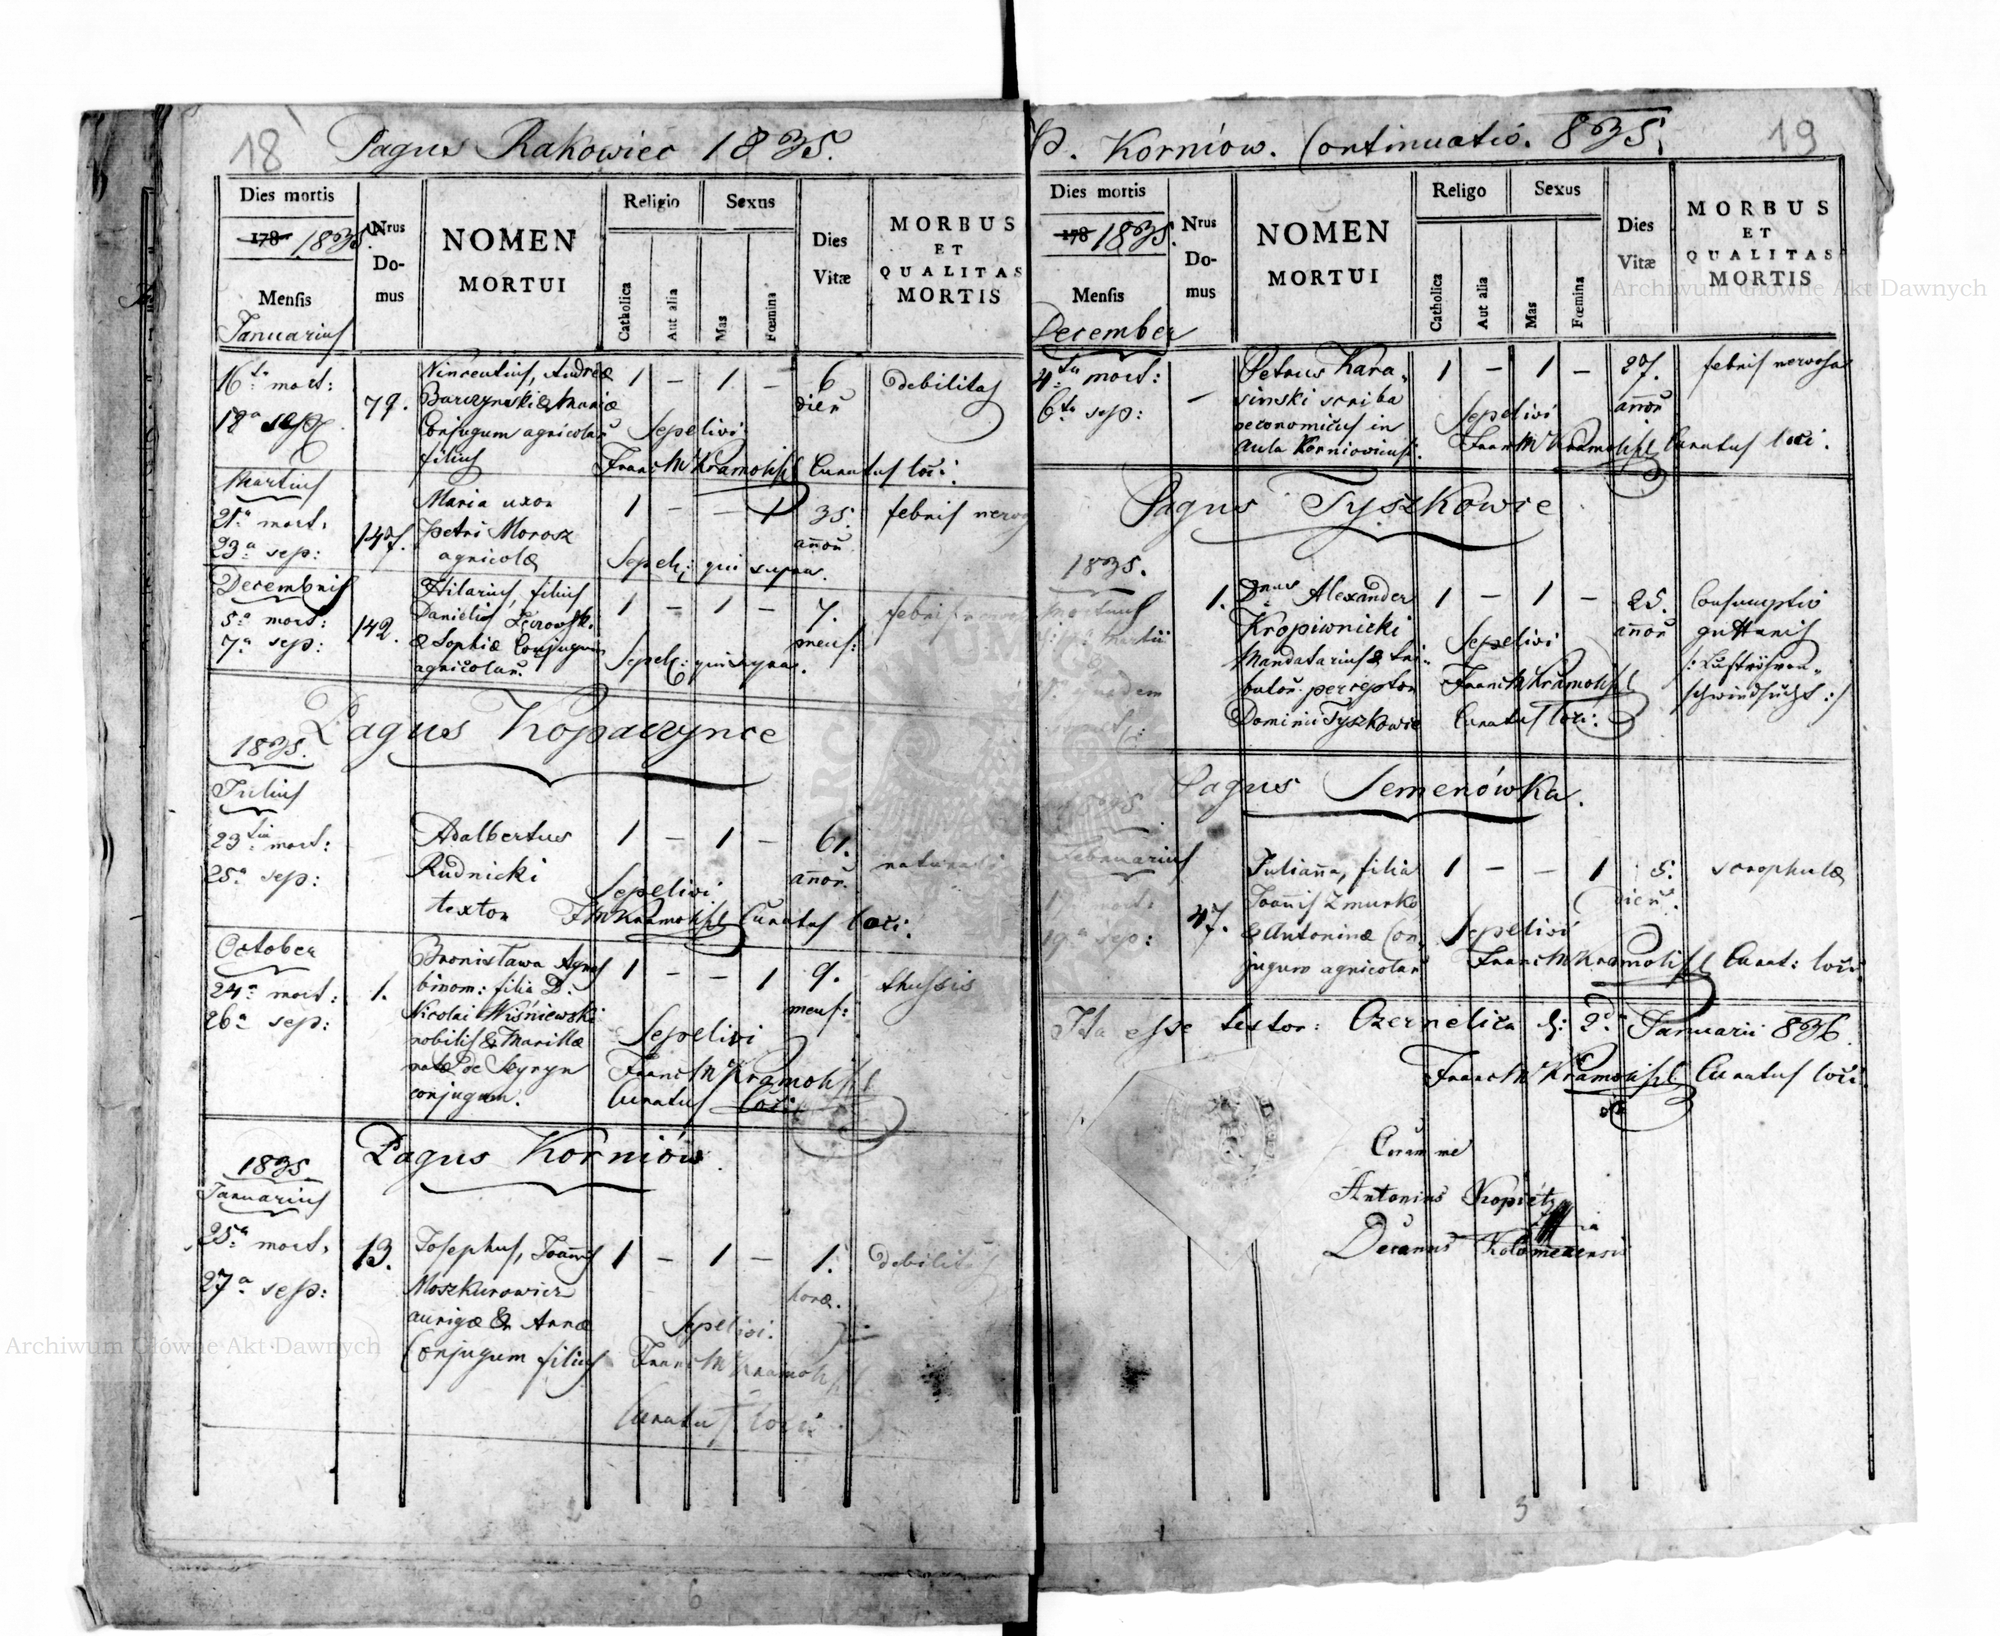 18
Pagus Rakowiec 1835.
Dies mortis
178 1835.
Mensis
Januarius
Nrus
Do-
mus
NOMEN
MORTUI
Religio
Catholica
Aut alia
Sexus
Mas
Fœmina
Dies
Vitæ
MORBUS
ET
QUALITAS
MORTIS
16ta mort:
18a sep:
79.
Vincentius, Andreæ
Barczynski & Mariæ
Conjugum agricolar
filius
1 – 1 –
6
dier
debilitas
Sepelivi
Franc M Kramolisz Curatus loci:
Martius
21a mort:
23a sep:
147.
Maria uxor
Petri Morosz
agricolæ
1 – – 1
35.
annor
febris nervos
Sepel: qui supra.
Decembris
5a mort:
7a sep:
142.
Hilarius, filius
Danielis
& Sophiæ Conjugum
agricolar.
1 – 1 –
7.
mens:
febris
Sepel: qui supra.
Pagus Kopaczynce
1835.
Julius
23tia mort:
25a sep:
Adalbertus
Rudnicki
textor
1 – 1 –
61.
annor.
naturalis
Sepelivi
F M Kramolisz Curatus loci.
October
24a mort:
26a sep:
1.
Bronisława Agnes
binom: filia D.
Nicolai Wiśniewski
nobilis & Mariæ
natæ de
conjugum.
1 – – 1
9.
mens:
thussis
Sepelivi
Franc M Kramolisz
Curatus loci
Pagus Korniów.
1835
Januarius
25a mort.
27a sep:
13.
Josephus, Joannis
Moszkurowicz
aurigæ & Annæ
Conjugum filius
1 – 1 –
1.
horæ.
debilitas
Sepelivi.
Franc M Kramolisz
Curatus loci
6
19
P. Korniów. Continuatio. 835.
Dies mortis
178 1835.
Mensis
December
Nrus
Do-
mus
NOMEN
MORTUI
Religo
Catholica
Aut alia
Sexus
Mas
Fœmina
Dies
Vitæ
MORBUS
ET
QUALITAS
MORTIS
4ta mort:
6ta sep:
–
Petrus Kara-
sinski scriba
oeconomicus in
aula Korniowiensi.
1 – 1 –
27.
annor
febris nervosa
Sepelivi
Franc M Kramolisz Curatus loci.
Pagus Tyszkowie
1835.
Mortuus
Martii
1.
Dnus Alexander
Kropiwnicki
Mandatarius & tri-
butor. perceptor
Dominii Tyszkowie
1 – 1 –
25.
annor
Consumptio
gutturis
/: Luftröhren-
schwindsucht :/
Sepelivi
Franc M Kramolisz
Curatus loci:
Pagus Semenówka.
1835
Februarius
17a mort:
19a sep:
47.
Julianna, filia
Joannis Zmurko
& Antoninæ Con-
jugum agricolar
1 – – 1
5.
dier.
scrophulæ
Sepelivi
Franc M Kramolisz Curat: loci
Ita esse testor: Czernelica d: 2da Januarii 836
Franc M Kramolisz Curatus loci.
Coram me
Antonius Kopietz
Decanus Kolomeaensis
3
Archiwum Główne Akt Dawnych
Archiwum Główne Akt Dawnych